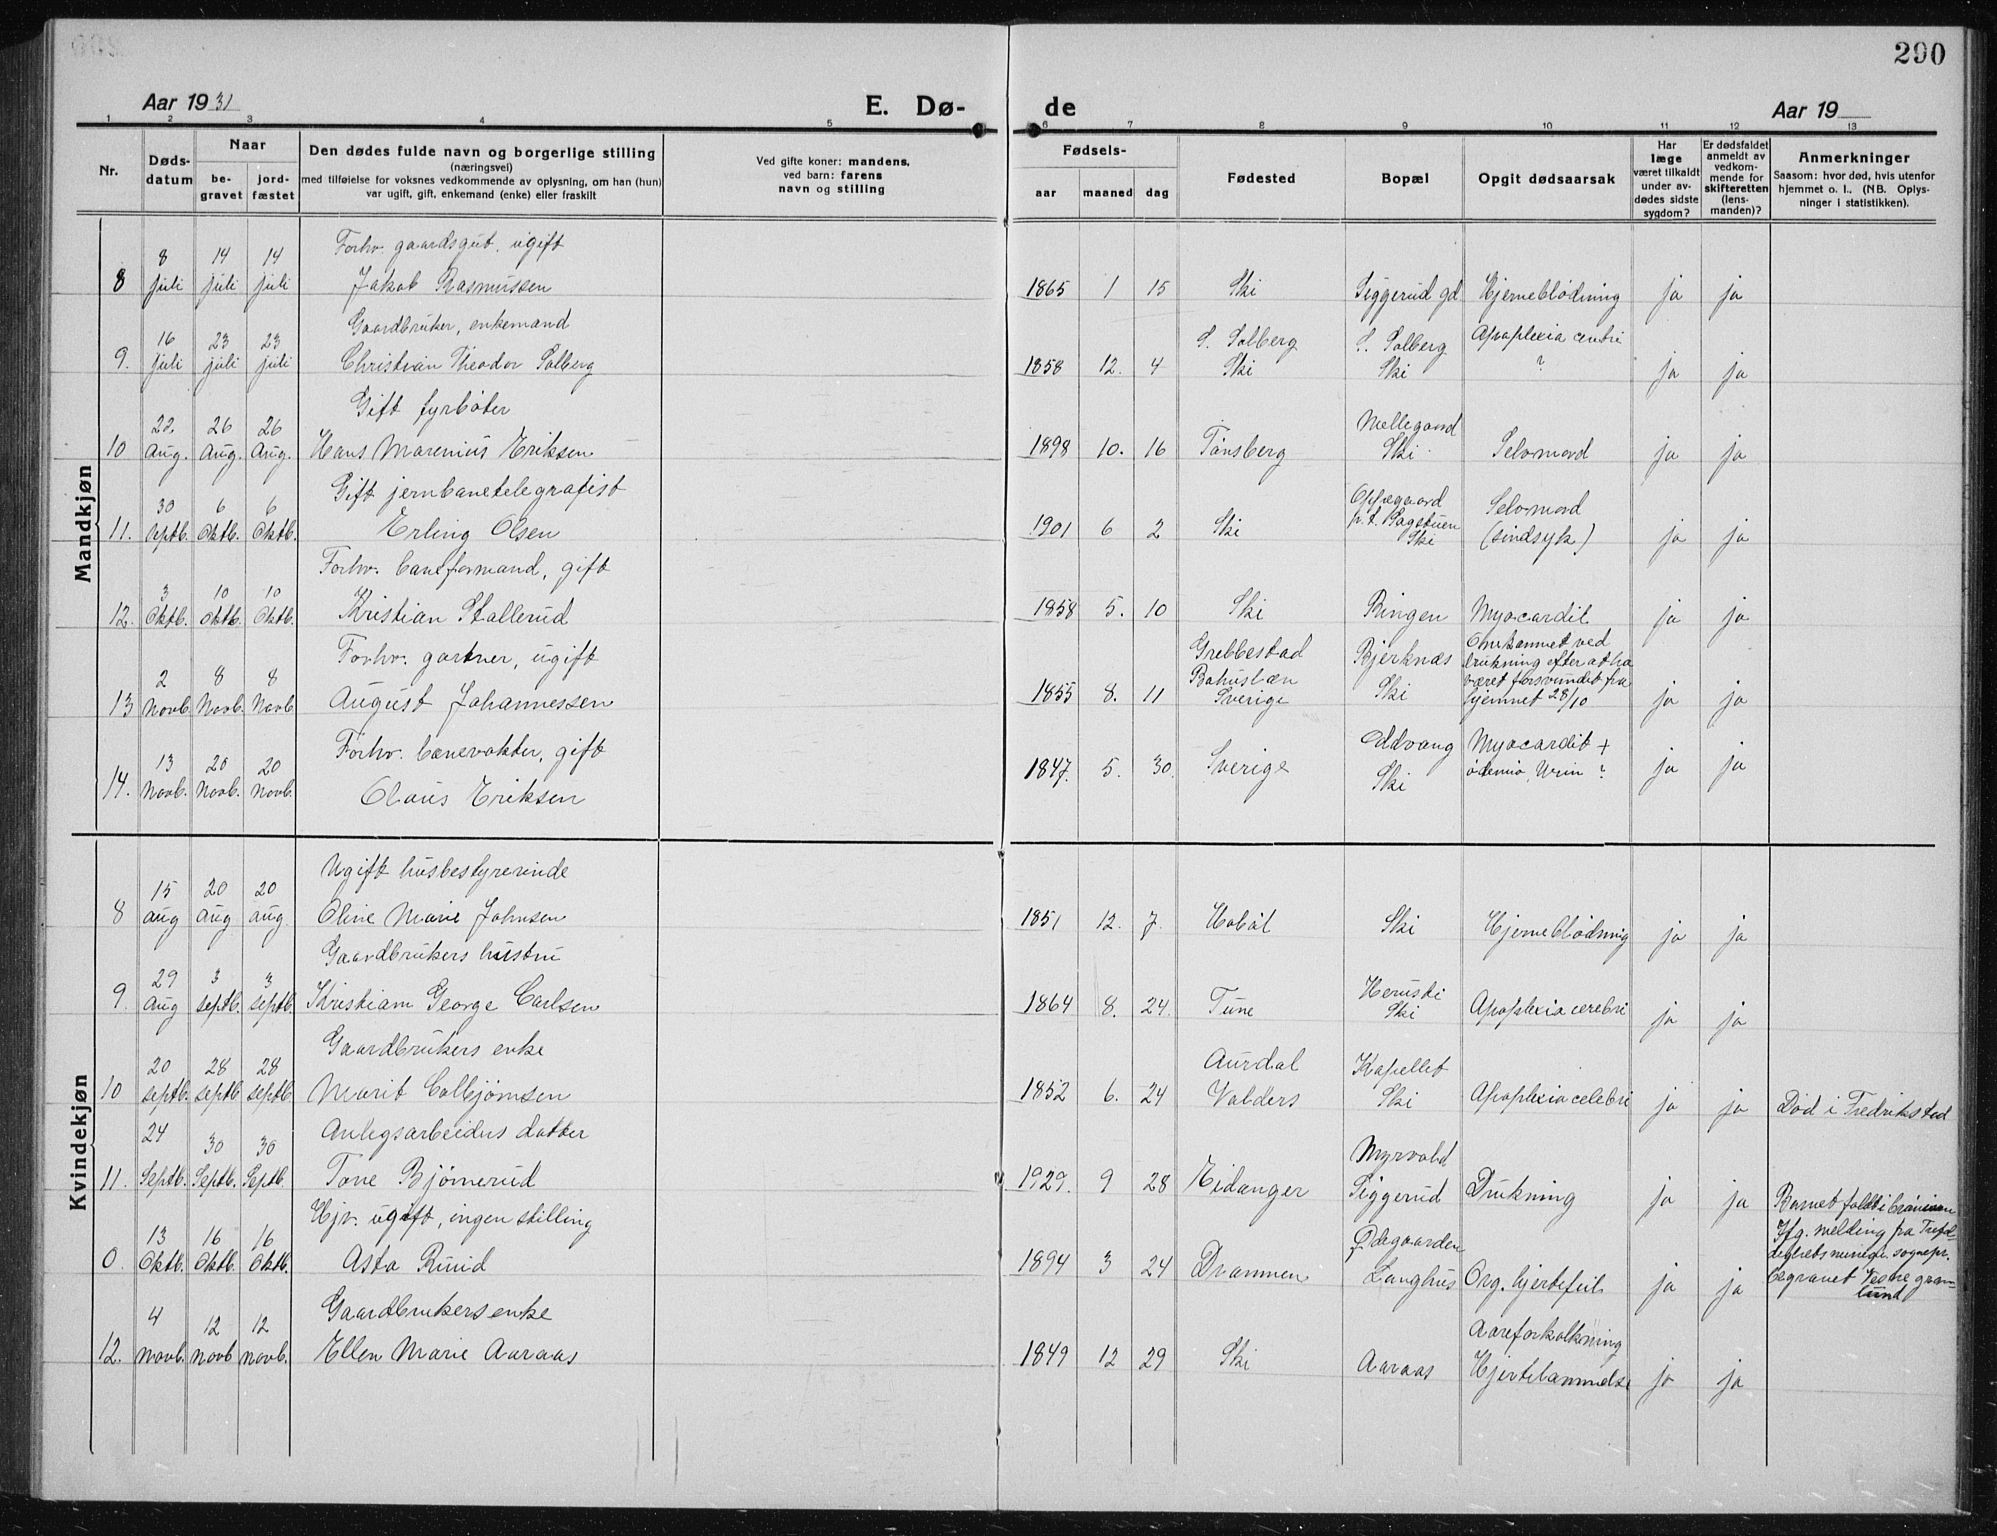 290
Aar 1931
E. Dø-
de
Aar 19
1 2 3 4 5 6 7 8 9 10 11 12 13
Nr.
Døds-
datum
Naar
be-
gravet
jord-
fæstet
Den dødes fulde navn og borgerlige stilling
(næringsvei)
med tilføielse for voksnes vedkommende av oplysning, om han (hun)
var ugift, gift, enkemand (enke) eller fraskilt
Ved gifte koner: mandens,
ved barn: farens
navn og stilling
Fødsels-
aar maaned dag
Fødested
Bopæl
Opgit dødsaarsak
Har
læge
været tilkaldt
under av-
dødes sidste
sygdom?
Er dødsfaldet
anmeldt av
vedkom-
mende for
skifteretten
(lens-
manden)?
Anmerkninger
Saasom: hvor død, hvis utenfor
hjemmet o. l., (NB. Oplys-
ninger i statistikken).
Mandkjøn
8 14 14 Forhv. gaardsgut, ugift
8 juli juli juli Jakob Rasmussen 1865 1 15 Ski Siggerud gd Hjerneblødning ja ja
16 23 23 Gaardbruker, enkemand S. Solberg S. Solberg Apoplexia centri
9. juli juli juli Christian Theodor Solberg 1858 12. 4 Ski Ski ? ja ja
22. 26 26 Gift fyrbøter Mellegaard
10 Aug. Aug. Aug. Hans Marenius Eriksen 1898 10. 16 Tønsberg Ski Selvmord ja ja
30 6 6 Gift jernbanetelegrafist Oppegaard Selvmord
p. t. Sagstuen
11. septb. Oktb. Oktb. Erling Olsen 1901 6 2 Ski Ski (sindsyk) ja ja
3 10 10 Forhv. baneformand, gift
12. Oktb. Oktb. Oktb. Kristian Stallerud 1858 5. 10 Ski Ringen Myocardit ja ja
2 8 8 Forhv. gartner, ugift Grebbestad Bjerknæs Omkommet ved
Bahuslæn drukning efter at ha
været forsvundet fra
13 Novb. Novb. Novb. August Johannessen 1855 8. 11 Sverige Ski hjemmet 28/10 ja ja
13 20 20 Forhv. banevokter, gift Oddvang Myocardit +
14. Novb. Novb. Novb. Claus Eriksen 1847. 5. 30. Sverige Ski ? ja ja
Kvindekjøn
15 20 20 Ugift husbestyrerinde
8 aug aug aug. Oline Marie Johnsen 1851 12. 7. Hobøl Ski Hjerneblødning ja ja
29 3 3 Gaardbrukers hustru
9. aug septb. septb. Kristiam George Carlsen 1864 8. 24. Tune Ski Apoplexia cerebri ja ja
20 28 28 Gaardbrukers enke Aurdal Kapellet
10 septb. septb. septb. Marit 1852 6. 24 Valders Ski Apoplexia celebri ja ja Død i Fredrikstad
24 30 30 datter Myrvold
11. Septb. Septb. Septb. Tove Bjørnerud 1929. 9 28 Eidanger Siggerud Drukning ja ja Barnet faldt i
13 16 16 Hjv. ugift, ingen stilling Ødegaarden Ifg. melding fra
0. Oktb. Oktb. Oktb. Asta Ruud 1894 3 24 Drammen Langhus Org. hjertefeil ja ja begravet Vestre grav-
lund
4 12 12 Gaardbrukers enke Aareforkalkning
12. novb. novb novb. Ellen Marie Aaraas 1849 12 29 Ski Aaraas Hjertelammelse ja ja